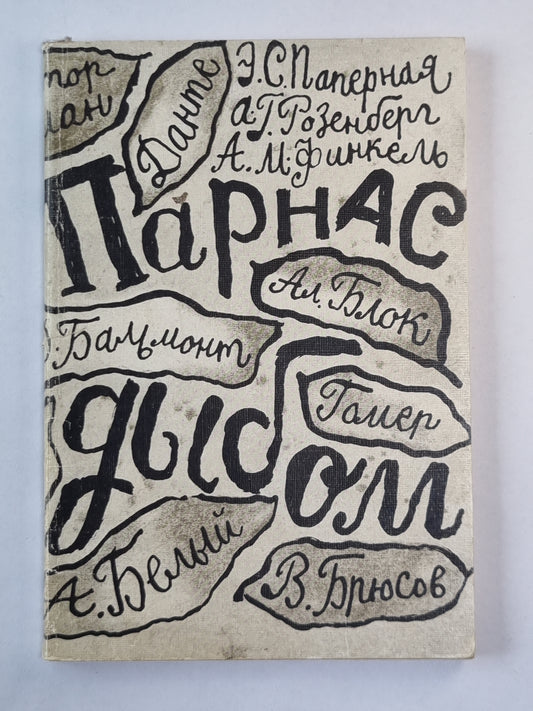 тор
ман
Данте
Э.С.Паперная
А.Г.Розенберг
А.М.Финкель
Парнас
Ал. Блок
.Бальмонт
Гомер
дыбом
А.Белый
В.Брюсов